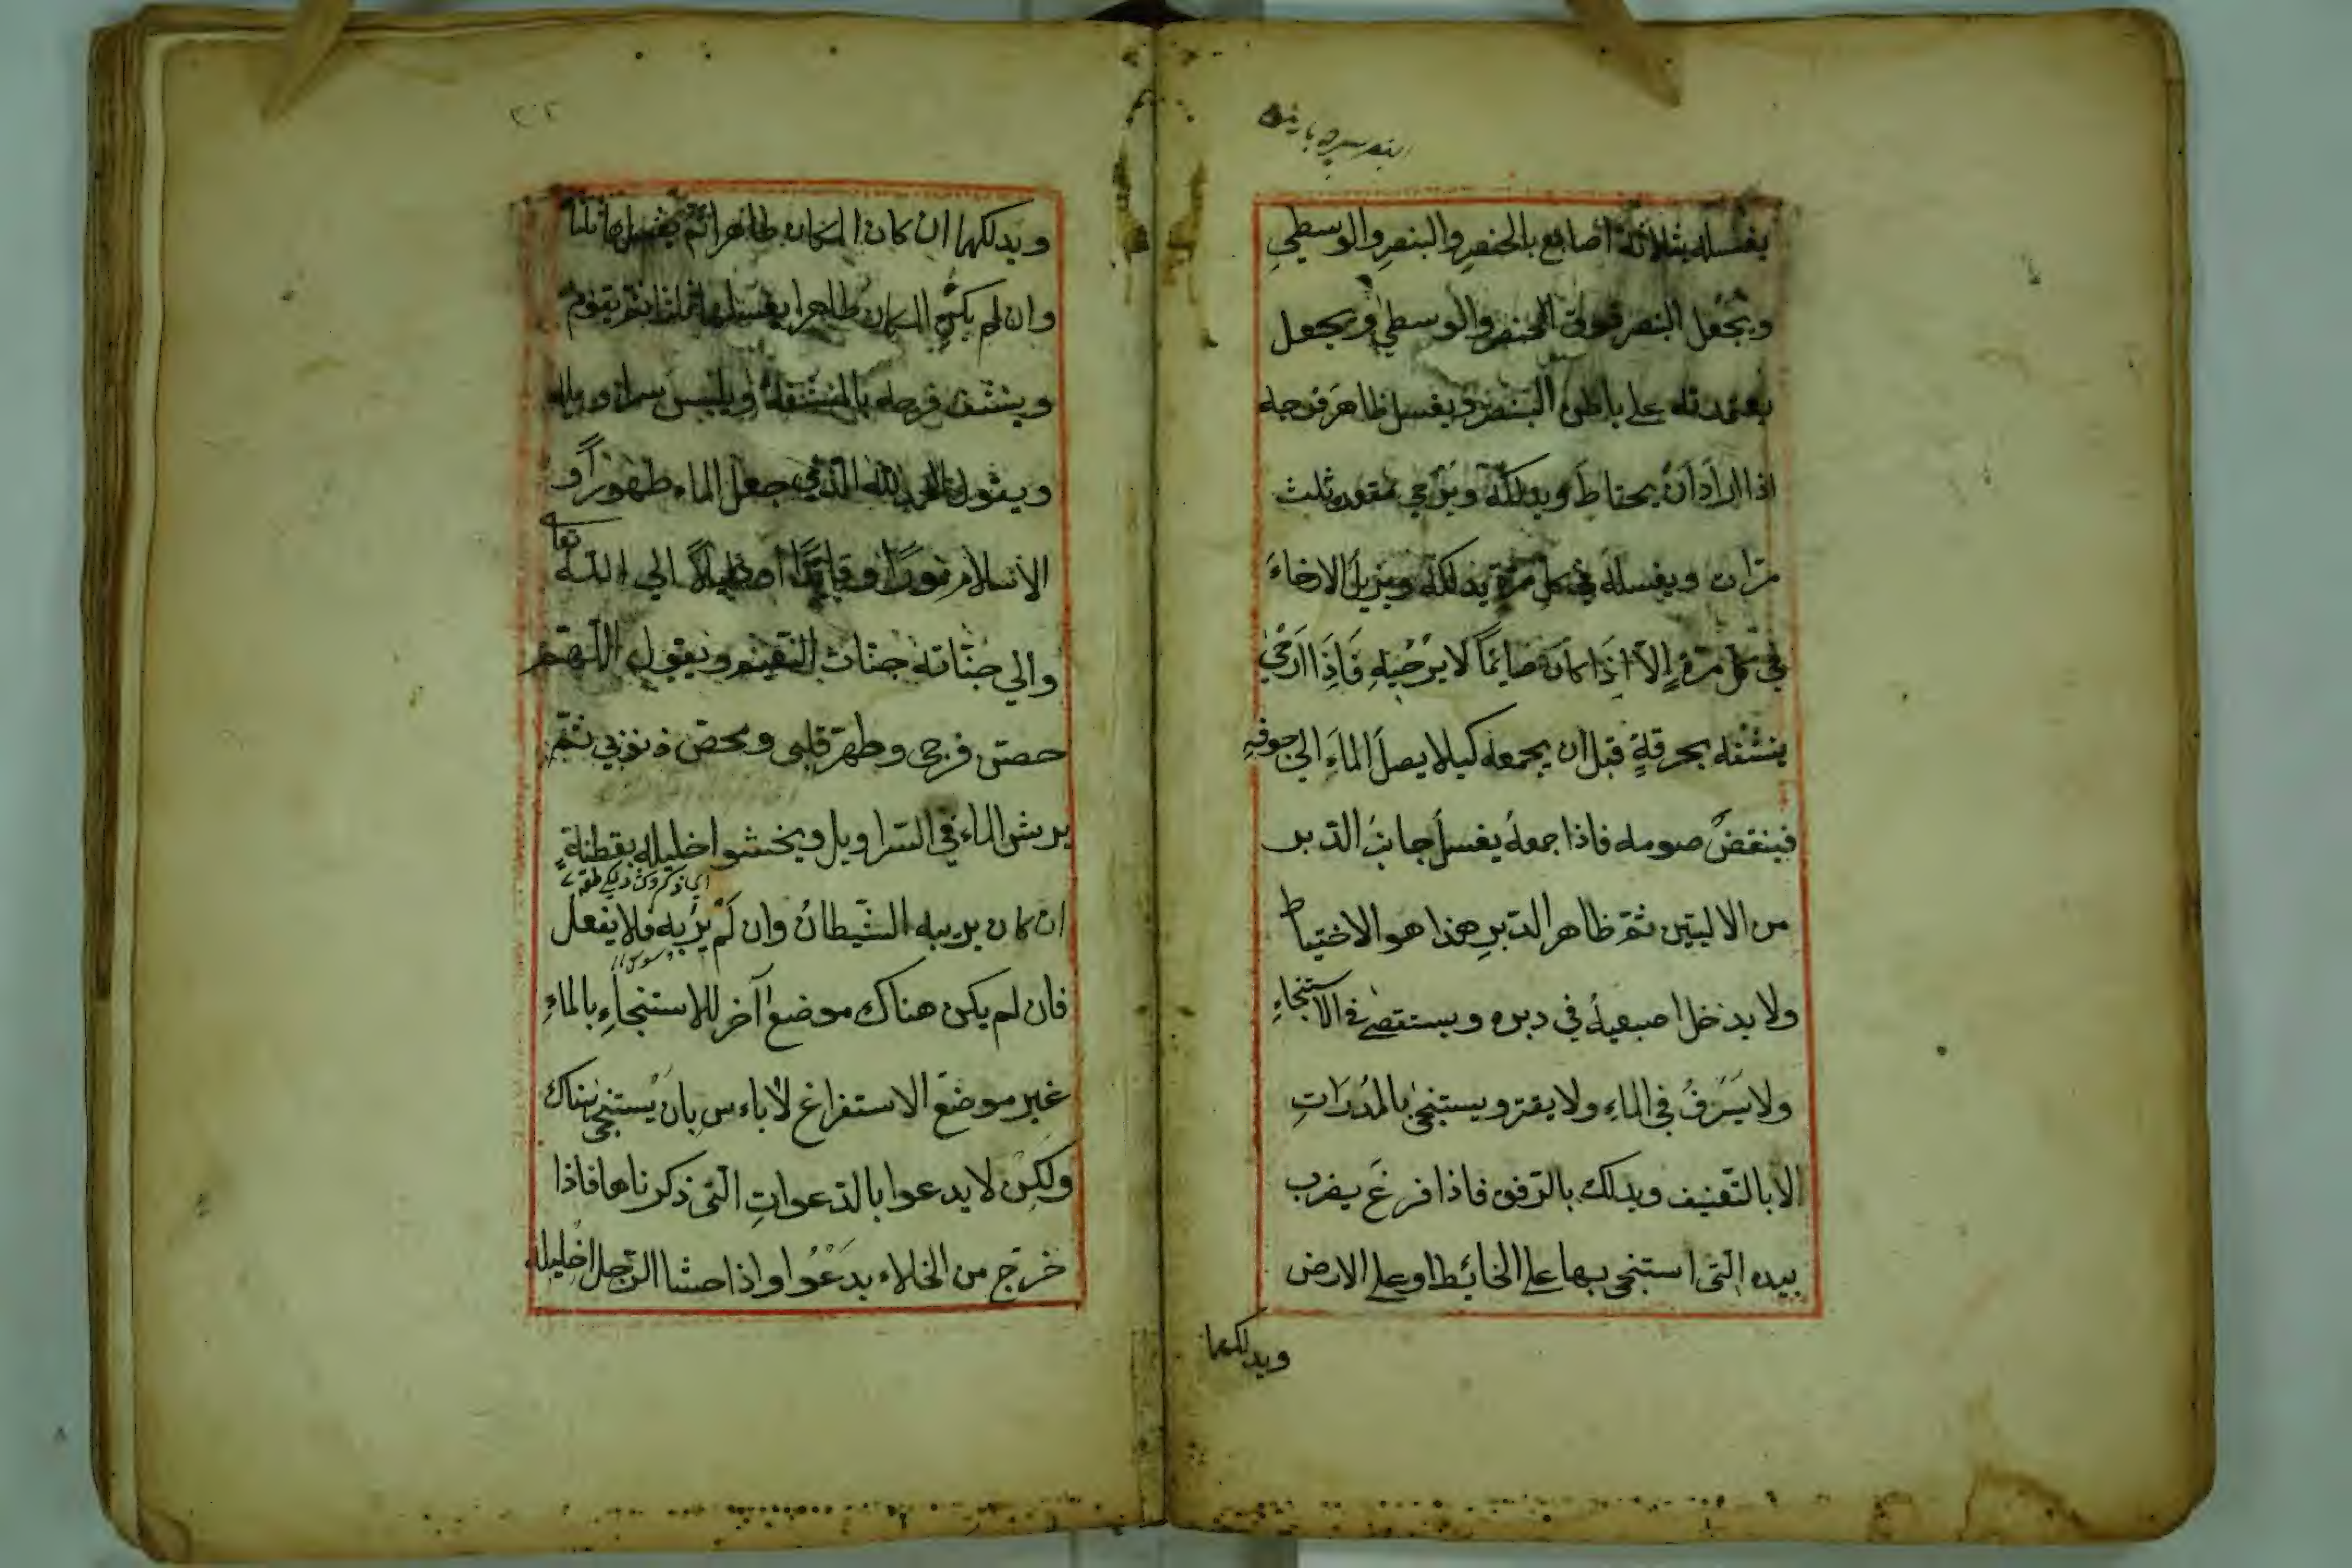 يغسله بثلاثة اصابع بالخنصر والبنصر والوسطي
ويجعل البنصر فوق الخنصر والوسطي ويجعل
يعتمد ته علي باطن البنصر ويغسل ظاهر فرجه
اذا اراد ان يحتاط ويدلكه ويرخي مقعده ثلث
مرّات ويغسله في كل مرة يدلكه ويزيل الارخاء
في كل مرة إلا اذا كان صايمًا لا يرخيه فاذا ارخي
ينشفه بخرقة قبل ان يجمعه كيلا يصل الماء الي جوفه
فينتقض صومه فاذا جمعه يغسل جانب الدّبر
من الاليتين ثمّ ظاهر الدّبر هذا هو الاختياط
ولا يدخل اصبعيه في دبره ويستقصي في الاستنجاء
ولا يسرف في الماء ولا يقتر ويستنجي بالمدرات
الا بالتّعنيف ويدلك بالرّفق فاذا فرغ يضرب
بيده الّتي استنجي بها علي الحائط او علي الارض
ويدلكها
ويدلكها ان كان المكان طاهرا ثم يغسلها ثلثا
وان لم يكن المكان طاهرا يغسلها ثلثا ثم يقوم
وينشف فرجه بالمنشفة او يلبس سراويله
ويقول الحمد لله الّذي جعل الماء طهورًا و
الاسلام نورًا وقايدًا ودليلًا الي الله تعا
والي جنّاته جنّات النعيم ويقول اللّهمّ
حصّن فرجي وطهّر قلبي ومحّص ذنوبي ثمّ
يرش الماء في السّراويل ويخشوا اخليله بقطنة
ان كان يريبه الشّيطان وان لم يربه فلا يفعل
فان لم يكن هناك موضع آخر للاستنجاء بالماء
غير موضع الاستفراغ لا باءس بان يستنجي هناك
ولكن لا يدعوا بالدّعوات الّتي ذكرناها فاذا
خرج من الخلاء يدعوا واذا حشا الرّجل اخليله